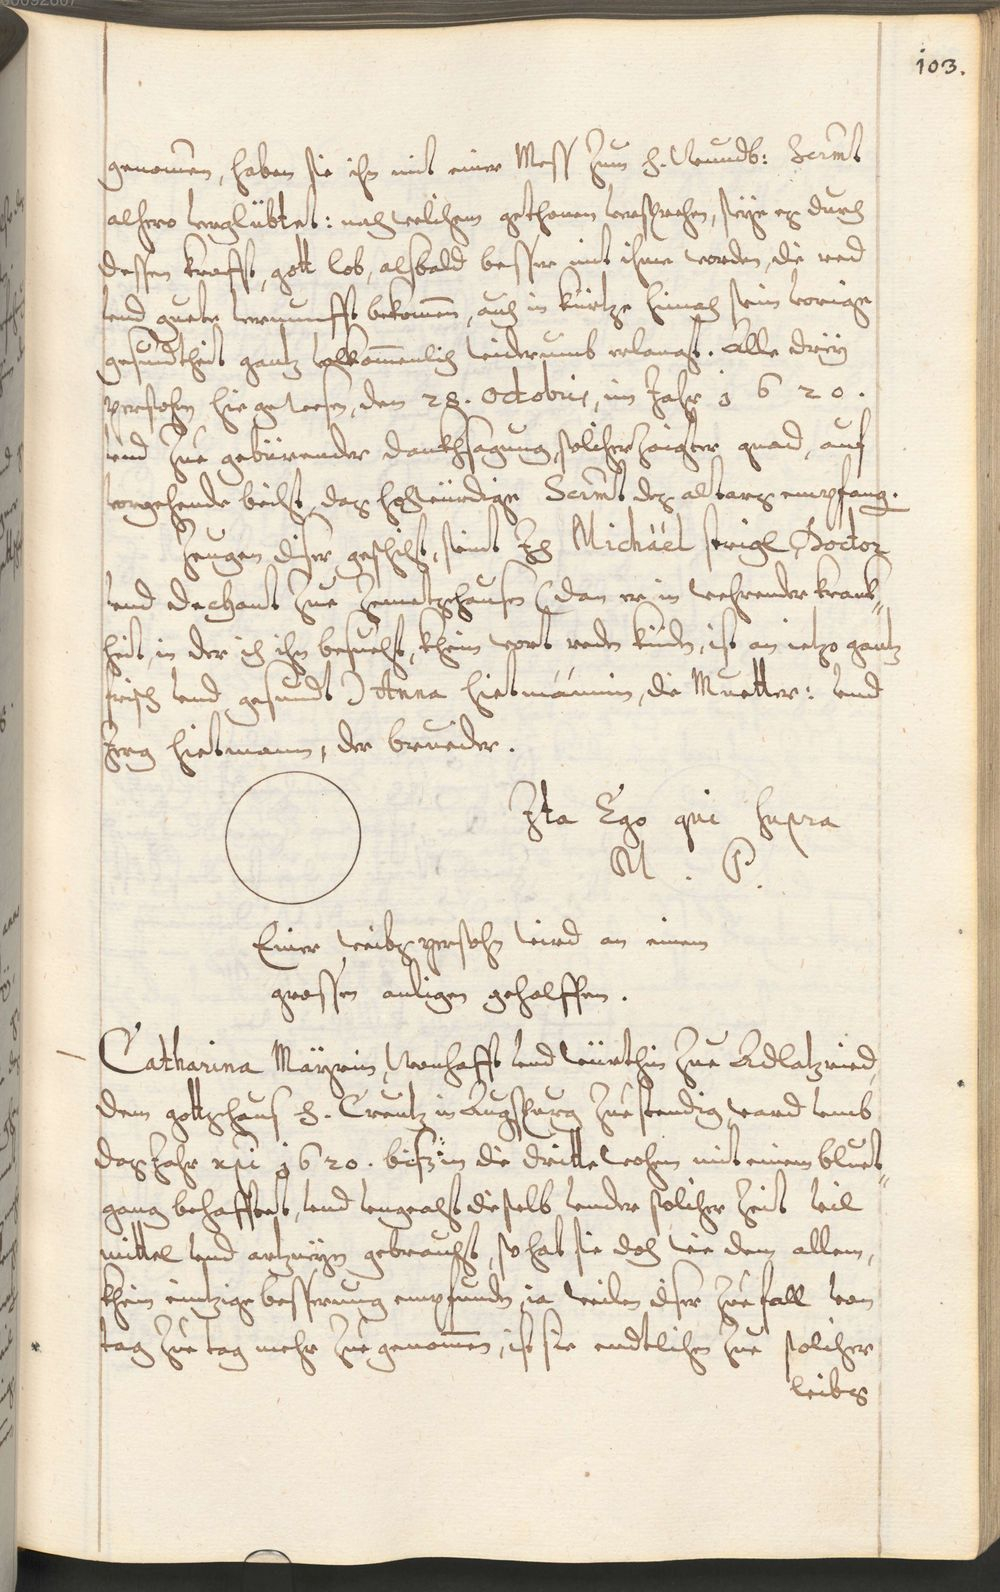 103.
genomen, haben sie ihn mit einer Mess zum h. Wundb: Scrmt
alhero verglübtet: nach welichem gethonen versprechen, seye es durch
dessen krafft, gott lob, alsbald besser mit ihme worden, die red
vnd guete vernunfft bekomen, auch in kürtze hinach sein vorige
gesundtheit gantz volkommenlich widerumb erlangt. Alle drey
persohn hie gewesen, den 28. Octobris, im Jahr 1620.
vnd zue gebürender danckhsagung, solicher zaigter gnad, auf
vorgehende beicht, das hochwürdige Scrmt des altars empfang.
Zeugen diser geschicht, seint Jch Michäel strigl Doctor
vnd dechant zue Zemetzhausen (dan er in wehrender kranck„
heit, in der ich ihn besuecht, khein wort reden künden, ist an ietzo gantz
frisch vnd gesundt) Anna hietmännin, die Muetter: vnd
Jerg hietmann, der brueder.
Ita Ego qui supra
M. P.
Einer weibs persohn wird an einem
grossen anligen geholffen.
Catharina Mäyrin, Wonhafft vnd würthin zue Adlatzried,
dem gottshaus h. Creutz in Augspurg zuestendig, ward vmb
das Jahr xpi 1620. bis in die dritte wochen mit einem bluet„
gang behafftet, vnd vngeacht dieselb vnder solicher zeit vil
mittel vnd artzneyen gebraucht, so hat sie doch wie dem allem,
khein eintzige besserung empfunden, ia weilen diser zuefall von
tag zue tag mehr zuegenomen, ist sie endtlichen zue solicher
leibs